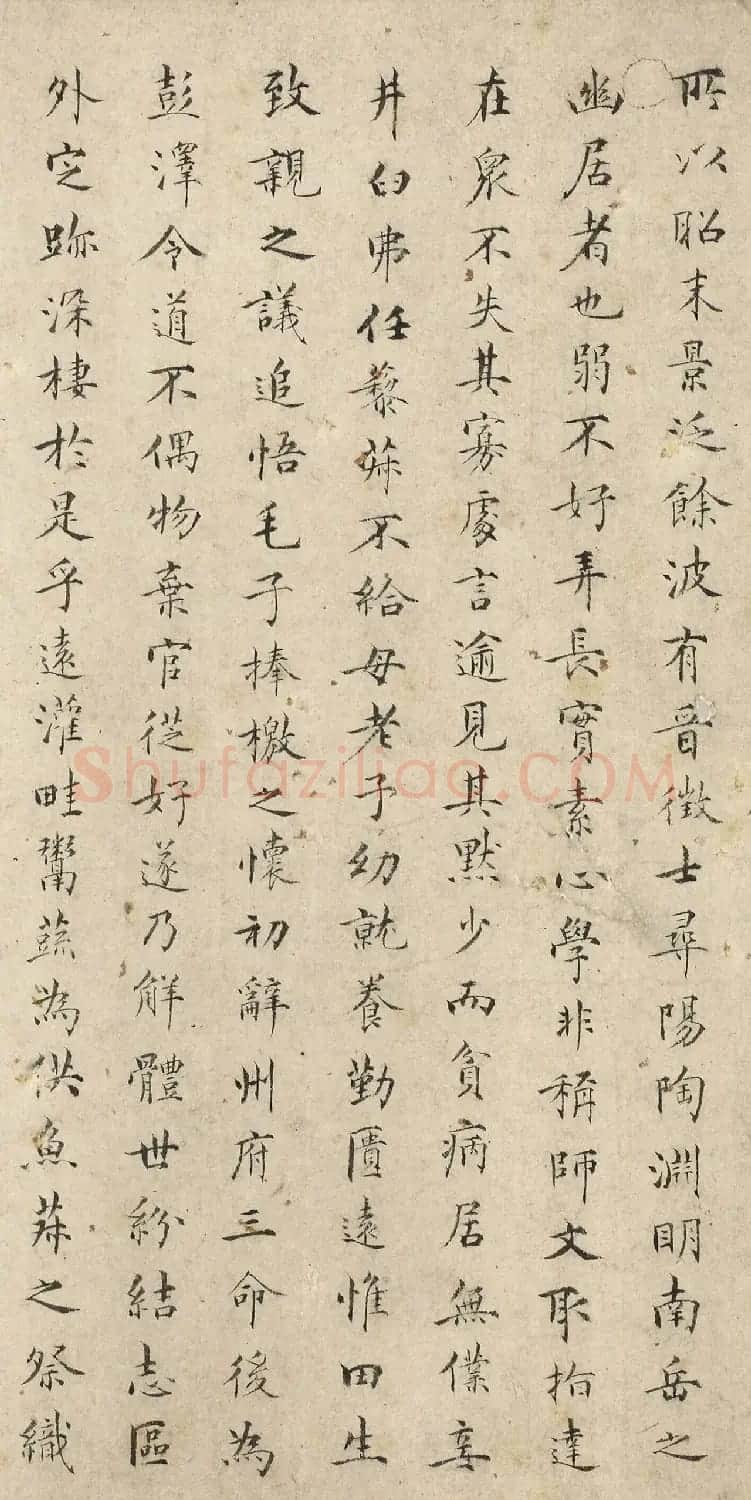 所以昭末景泛餘波有晉徵士尋陽陶淵明南岳之
幽居者也弱不好弄長實素心學非稱師文取指達
在眾不失其寡處言逾見其默少而貧病居無僕妾
井臼弗任藜菽不給母老子幼就養勤匱遠惟田生
致親之議追悟毛子捧檄之懷初辭州府三命後為
彭澤令道不偶物棄官從好遂乃解體世紛結志區
外定跡深棲於是乎遠灌畦鬻蔬為供魚菽之祭織
Shufaziliao.COM